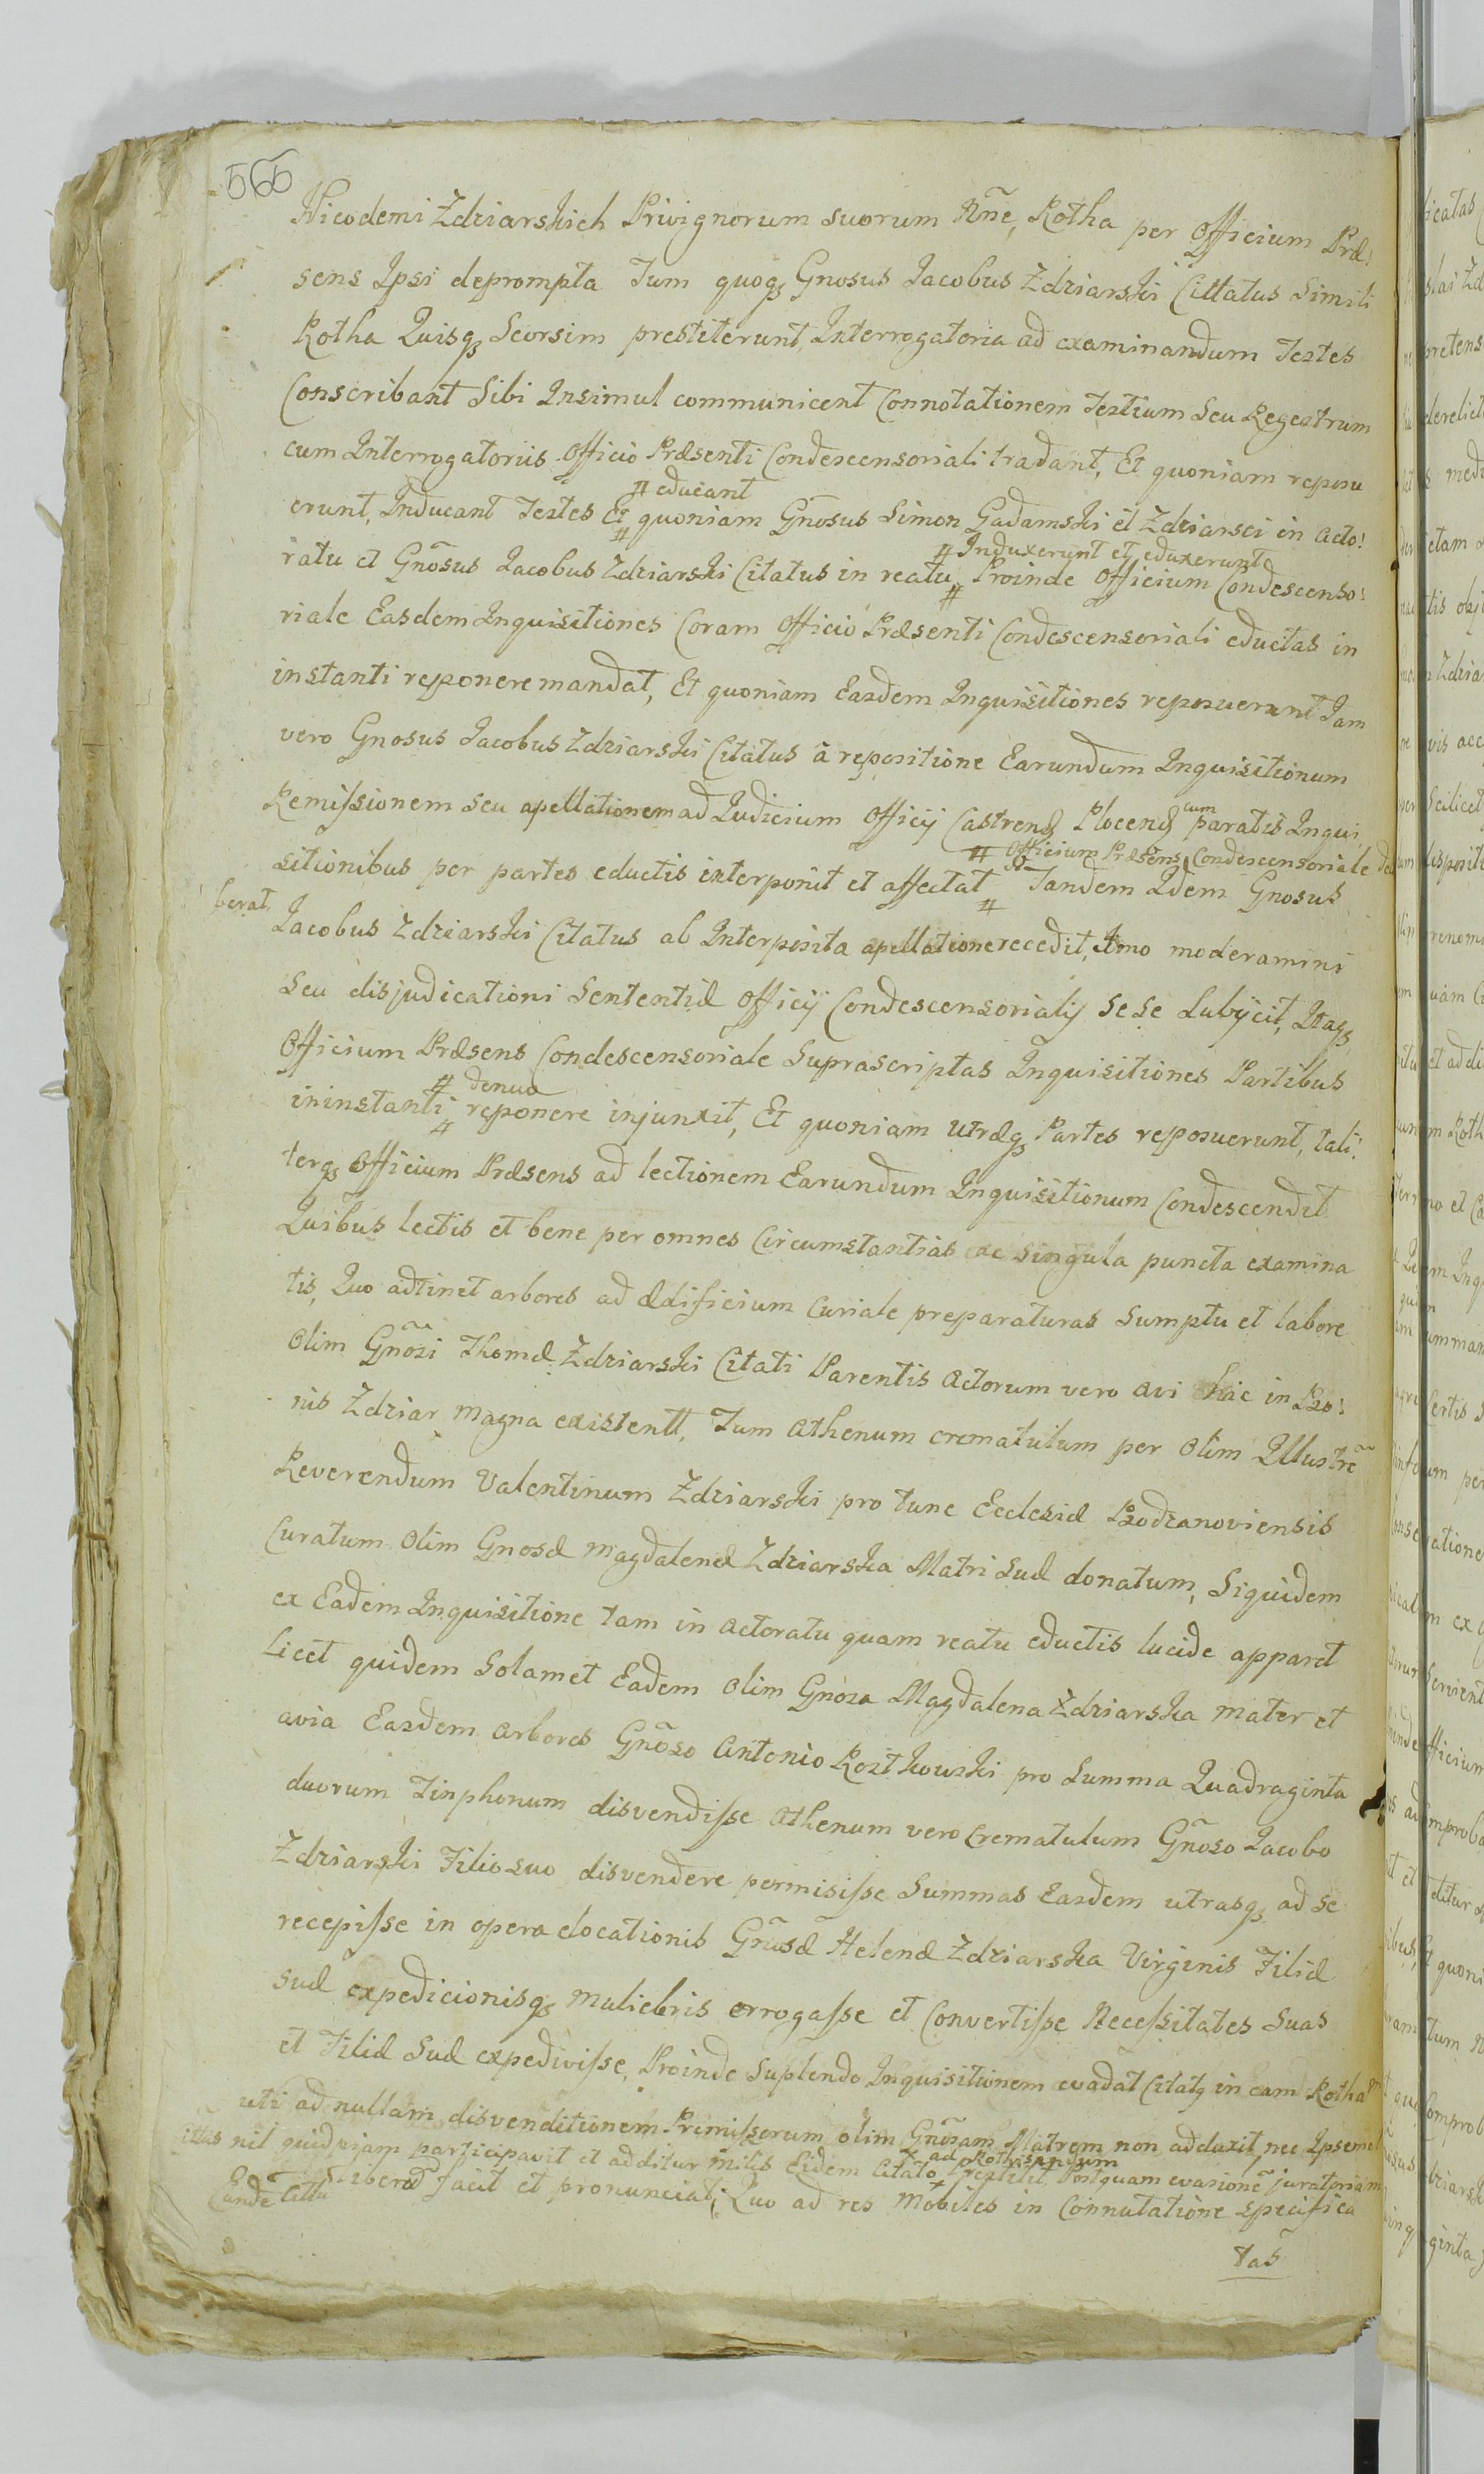 566
Nicodemi Zdziarskich Privignorum suorum Rñe, Rotha per Officium Præ:
sens Ipsi deprompta Tum quoqȝ Gnosus Iacobus Zdziarski Cittatus Simili
Rotha Quisqȝ Seorsim prestiterunt, Interrogatoria ad examinandum Testes
Conscribant Sibi Insimul communicent Connotationem Testium Seu Regestrum
cum Interrogatoriis Officio Præsenti Condescensoriali tradant, Et quoniam reposu
# educant
erunt, Inducant Testes Et # quoniam Gñosus Simon Gadamski et Zdziarsci in Acto:
# Induxerunt et eduxerunt
ratu et Gñosus Iacobus Zdziarski Citatus in reatu # Proinde Officium Condescenso:
riale Easdem Inquisitiones Coram Officio Præsenti Condescensoriali eductas in
instanti reponere mandat, Et quoniam Easdem Inquisitiones reposuerunt Iam
vero Gnosus Iacobus Zdziarski Citatus à repositione Earundum Inquisitionum
Remissionem seu apellationem ad Iudicium Officij Castrenȝ Plocenȝ cum paratis Inqui
# Officium Præsens Condescensoriale de
sitionibus per partes eductis interponit et affectat # Tandem Idem Gnosus
berat
Iacobus Zdziarski Citatus ab Interposita apellatione recedit, Imo moderamini
Seu disjudicationi Sententiæ Officij Condescensorialis se se Subijcit, Itaqȝ
Officium Præsens Condescensoriale Suprascriptas Inquisitiones Partibus
# denuo
in instanti # reponere injunxit, Et quoniam utræqȝ Partes reposuerunt, tali:
terqȝ Officium Præsens ad lectionem Earundum Inquisitionum Condescendit
Quibus lectis et bene per omnes Circumstantias ac singula puncta examina
tis, Quo adtinet arbores ad Ædificium Curiale preparaturas Sumptu et labore
Olim Gñosi Thomæ Zdziarski Citati Parentis Actorum vero Avi hic in Bo:
nis Zdziar magna existentt, Tum Athenum crematulum per Olim Illustrẽ
Reverendum Valentinum Zdziarski pro tunc Ecclesiæ Bodzanoviensis
Curatum Olim Gnosæ Magdalenæ Zdziarska Matri Suæ donatum, Siquidem
ex Eadem Inquisitione tam in Actoratu quam reatu eductis lucide apparet
Licet quidem Solamet Eadem Olim Gñosa Magdalena Zdziarska Mater et
avia Easdem arbores Gñoso Antonio Rostkowski pro Summa Quadraginta
duorum Tinphonum disvendisse Athenum vero Crematulum Gñoso Iacobo
Zdziarski Filio suo disvendere permisisse Summas Easdem utrasqȝ ad se
recepisse in opera elocationis Gñosæ Helenæ Zdziarska Virginis Filiæ
Suæ expedicionisqȝ muliebris errogasse et Convertisse Necessitates Suas
et Filiæ Suæ expedivisse, Proinde Suplendo Inquisitionem evadat Citatȝ in eam Rotham
uti ad nullam disvenditionem Premissorum olim Gñosam Matrem non adduxit, nec Ipsemet
nil quidpiam participavit et additur milis Eidem Citato ad Rothisandum Postquam evasionẽ
facit et pronunciat; Quo ad res Mobiles in Connutatione specifica
tas